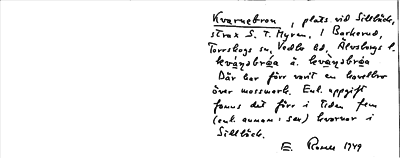 Kvarnebron, plats vid Sillbäck,
strax S. T. Myren, i Borkerud,
Torrskogs sn, Vedbo hd, Älvsborgs l.
Där har förr varit en kavelbro
över mossmark. Enl. uppgift
fanns det förr i tiden fem
(enl. annan: sex) kvarnar i
Sillbäck.
E. 1949